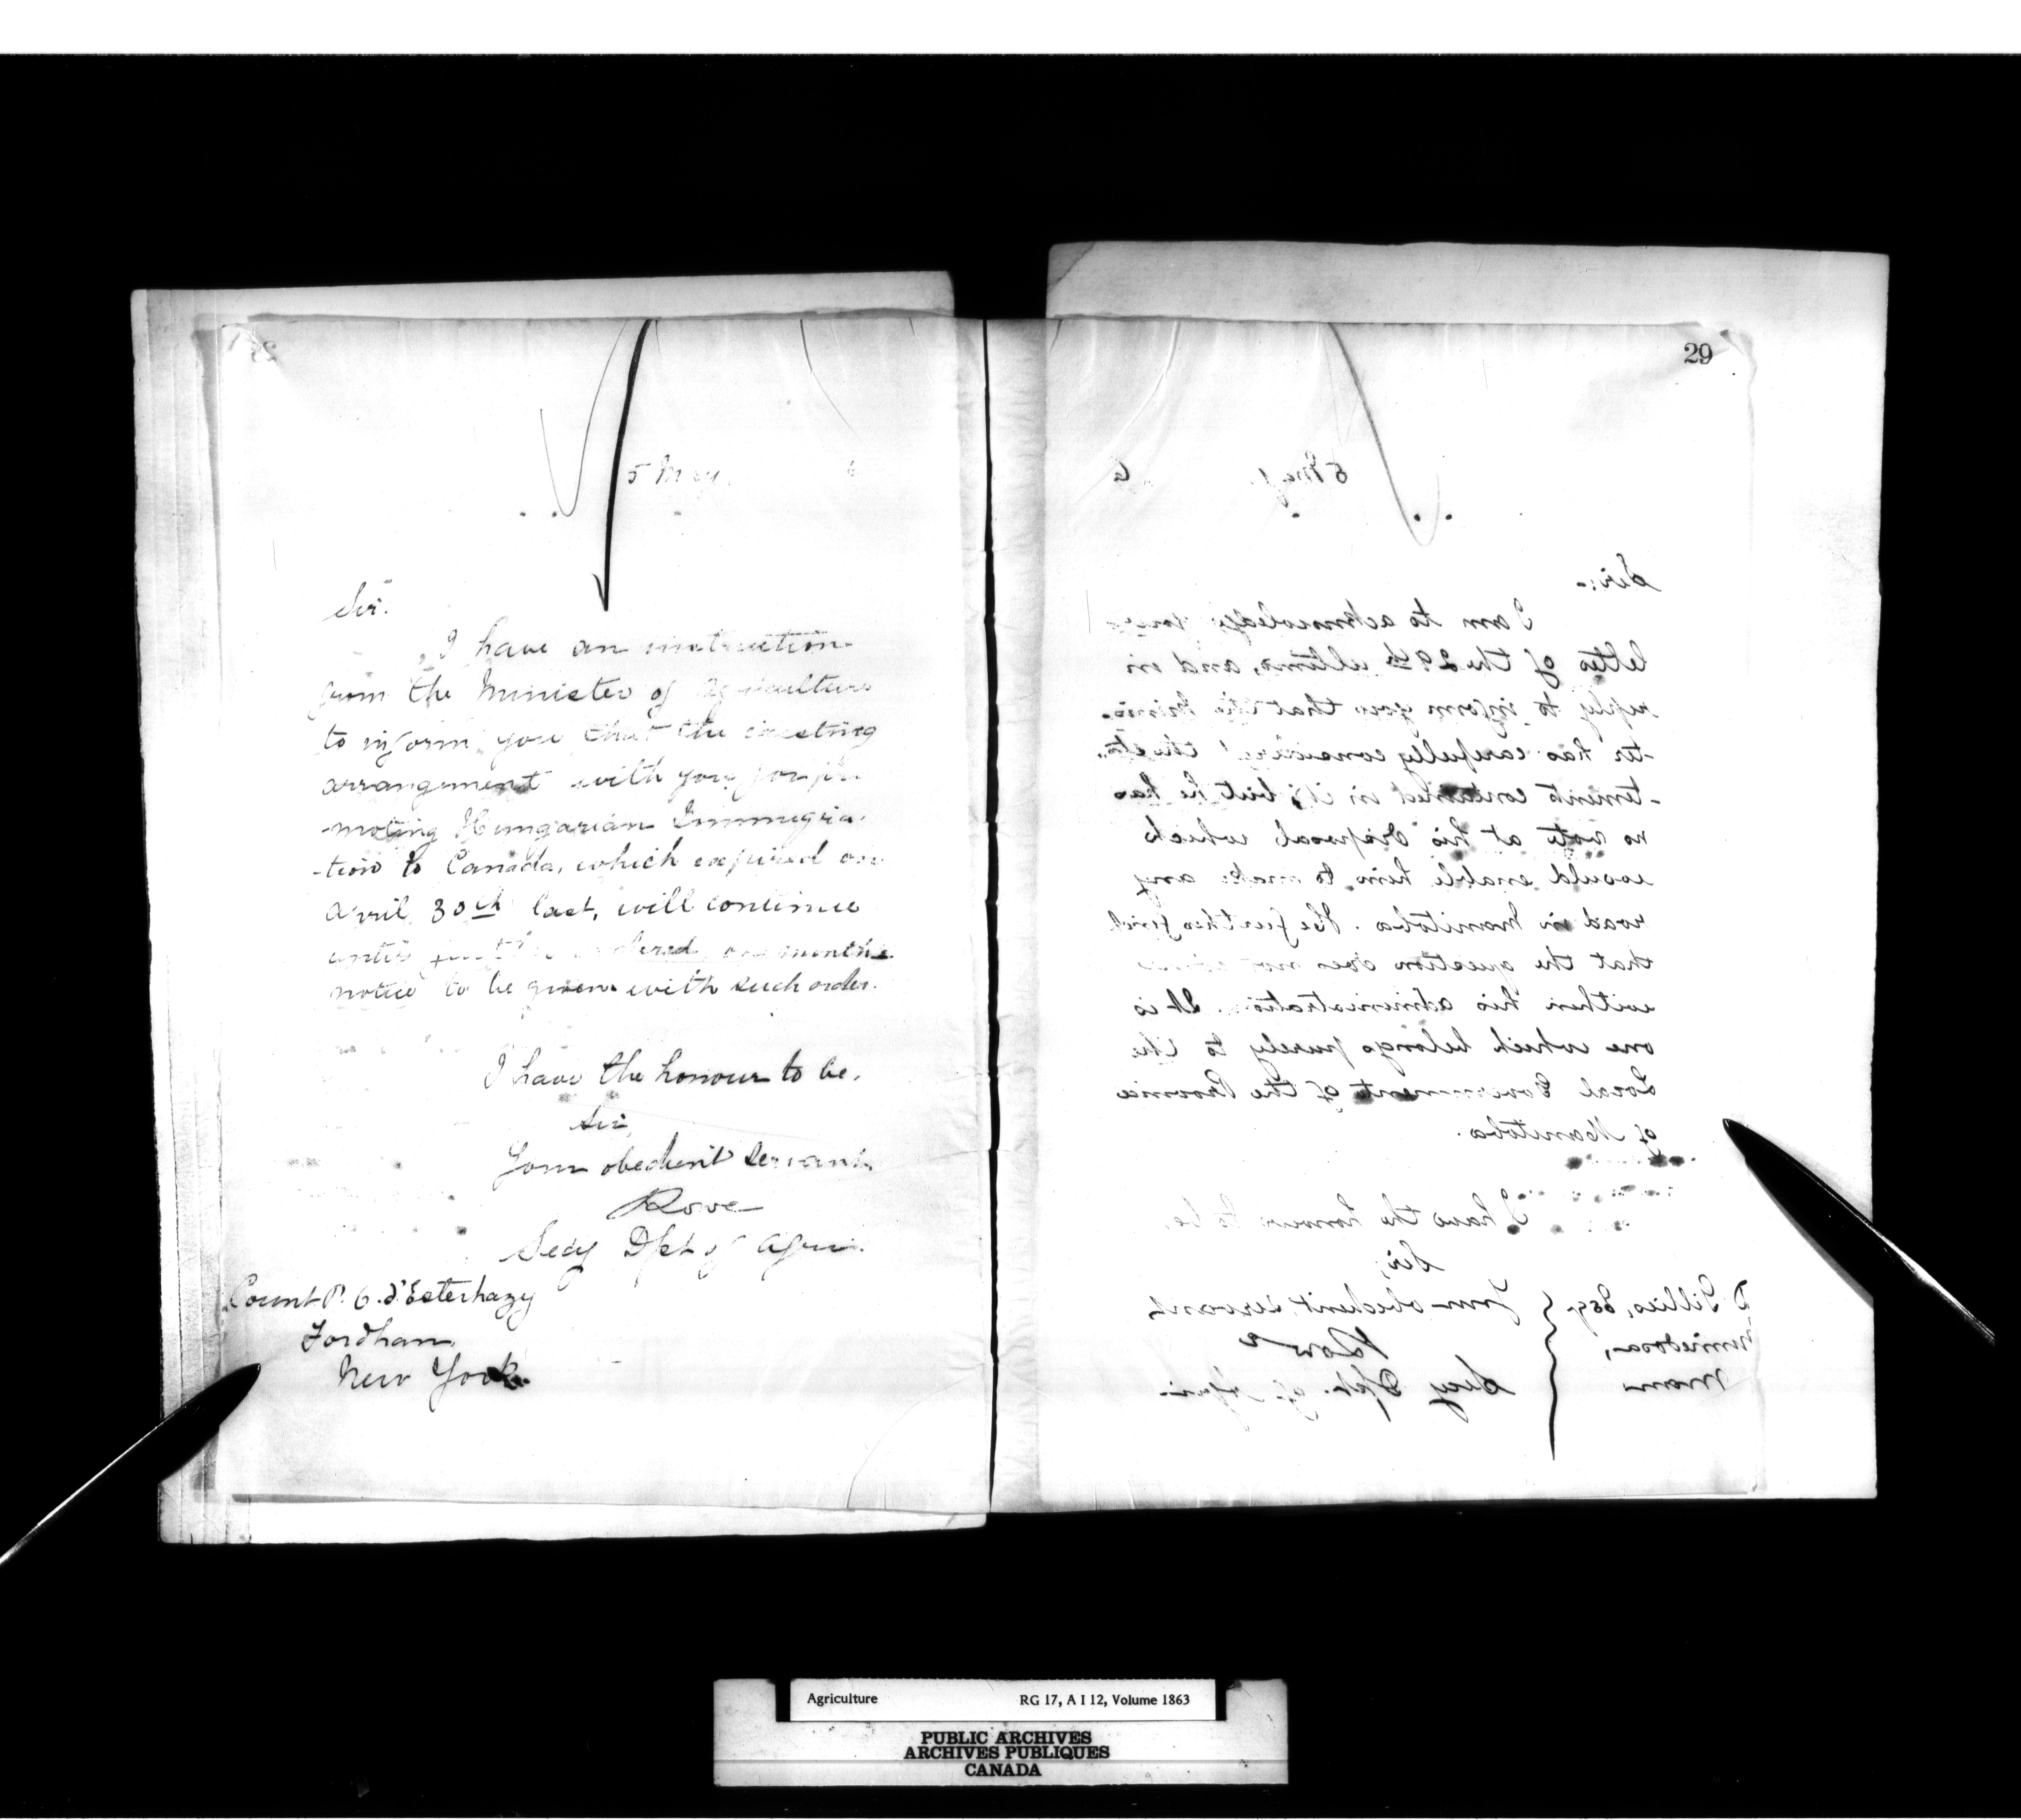 28
5 May. 6
Sir.
I have an instruction
from the Minister of Agriculture
to inform you that the existing
arrangement with you for pro
-moting Hungarian Immigra-
-tion to Canada, which expired on
April 30th last, will continue
until further ordered, one months
notice to be given with such order.
I have the honour to be,
Sir,
Your obedient Servant.
Lowe
Secy Dpt of Agri.
Count P. O. d'Esterhazy
Fordham,
New York.
29
5 May. 6
Sir:-
I am to acknowledge your
letter of the 29th ultimo, and in
reply to inform you that the Minis-
-ter has carefully considered the sta-
-tements contained in it, but he has
no vote at his disposal which
would enable him to make any
road in Manitoba. He further finds
that the question does not
within his administration. It is
one which belongs purely to the
Local Government of the Province
of Manitoba.
I have the honour to be,
Sir,
Your obedient servant,
Lowe
Secy Dpt. of Agri.
D Gillies, Esq.
Minnedosa,
Man
Agriculture RG 17, A I 12, Volume 1863
PUBLIC ARCHIVES
ARCHIVES PUBLIQUES
CANADA